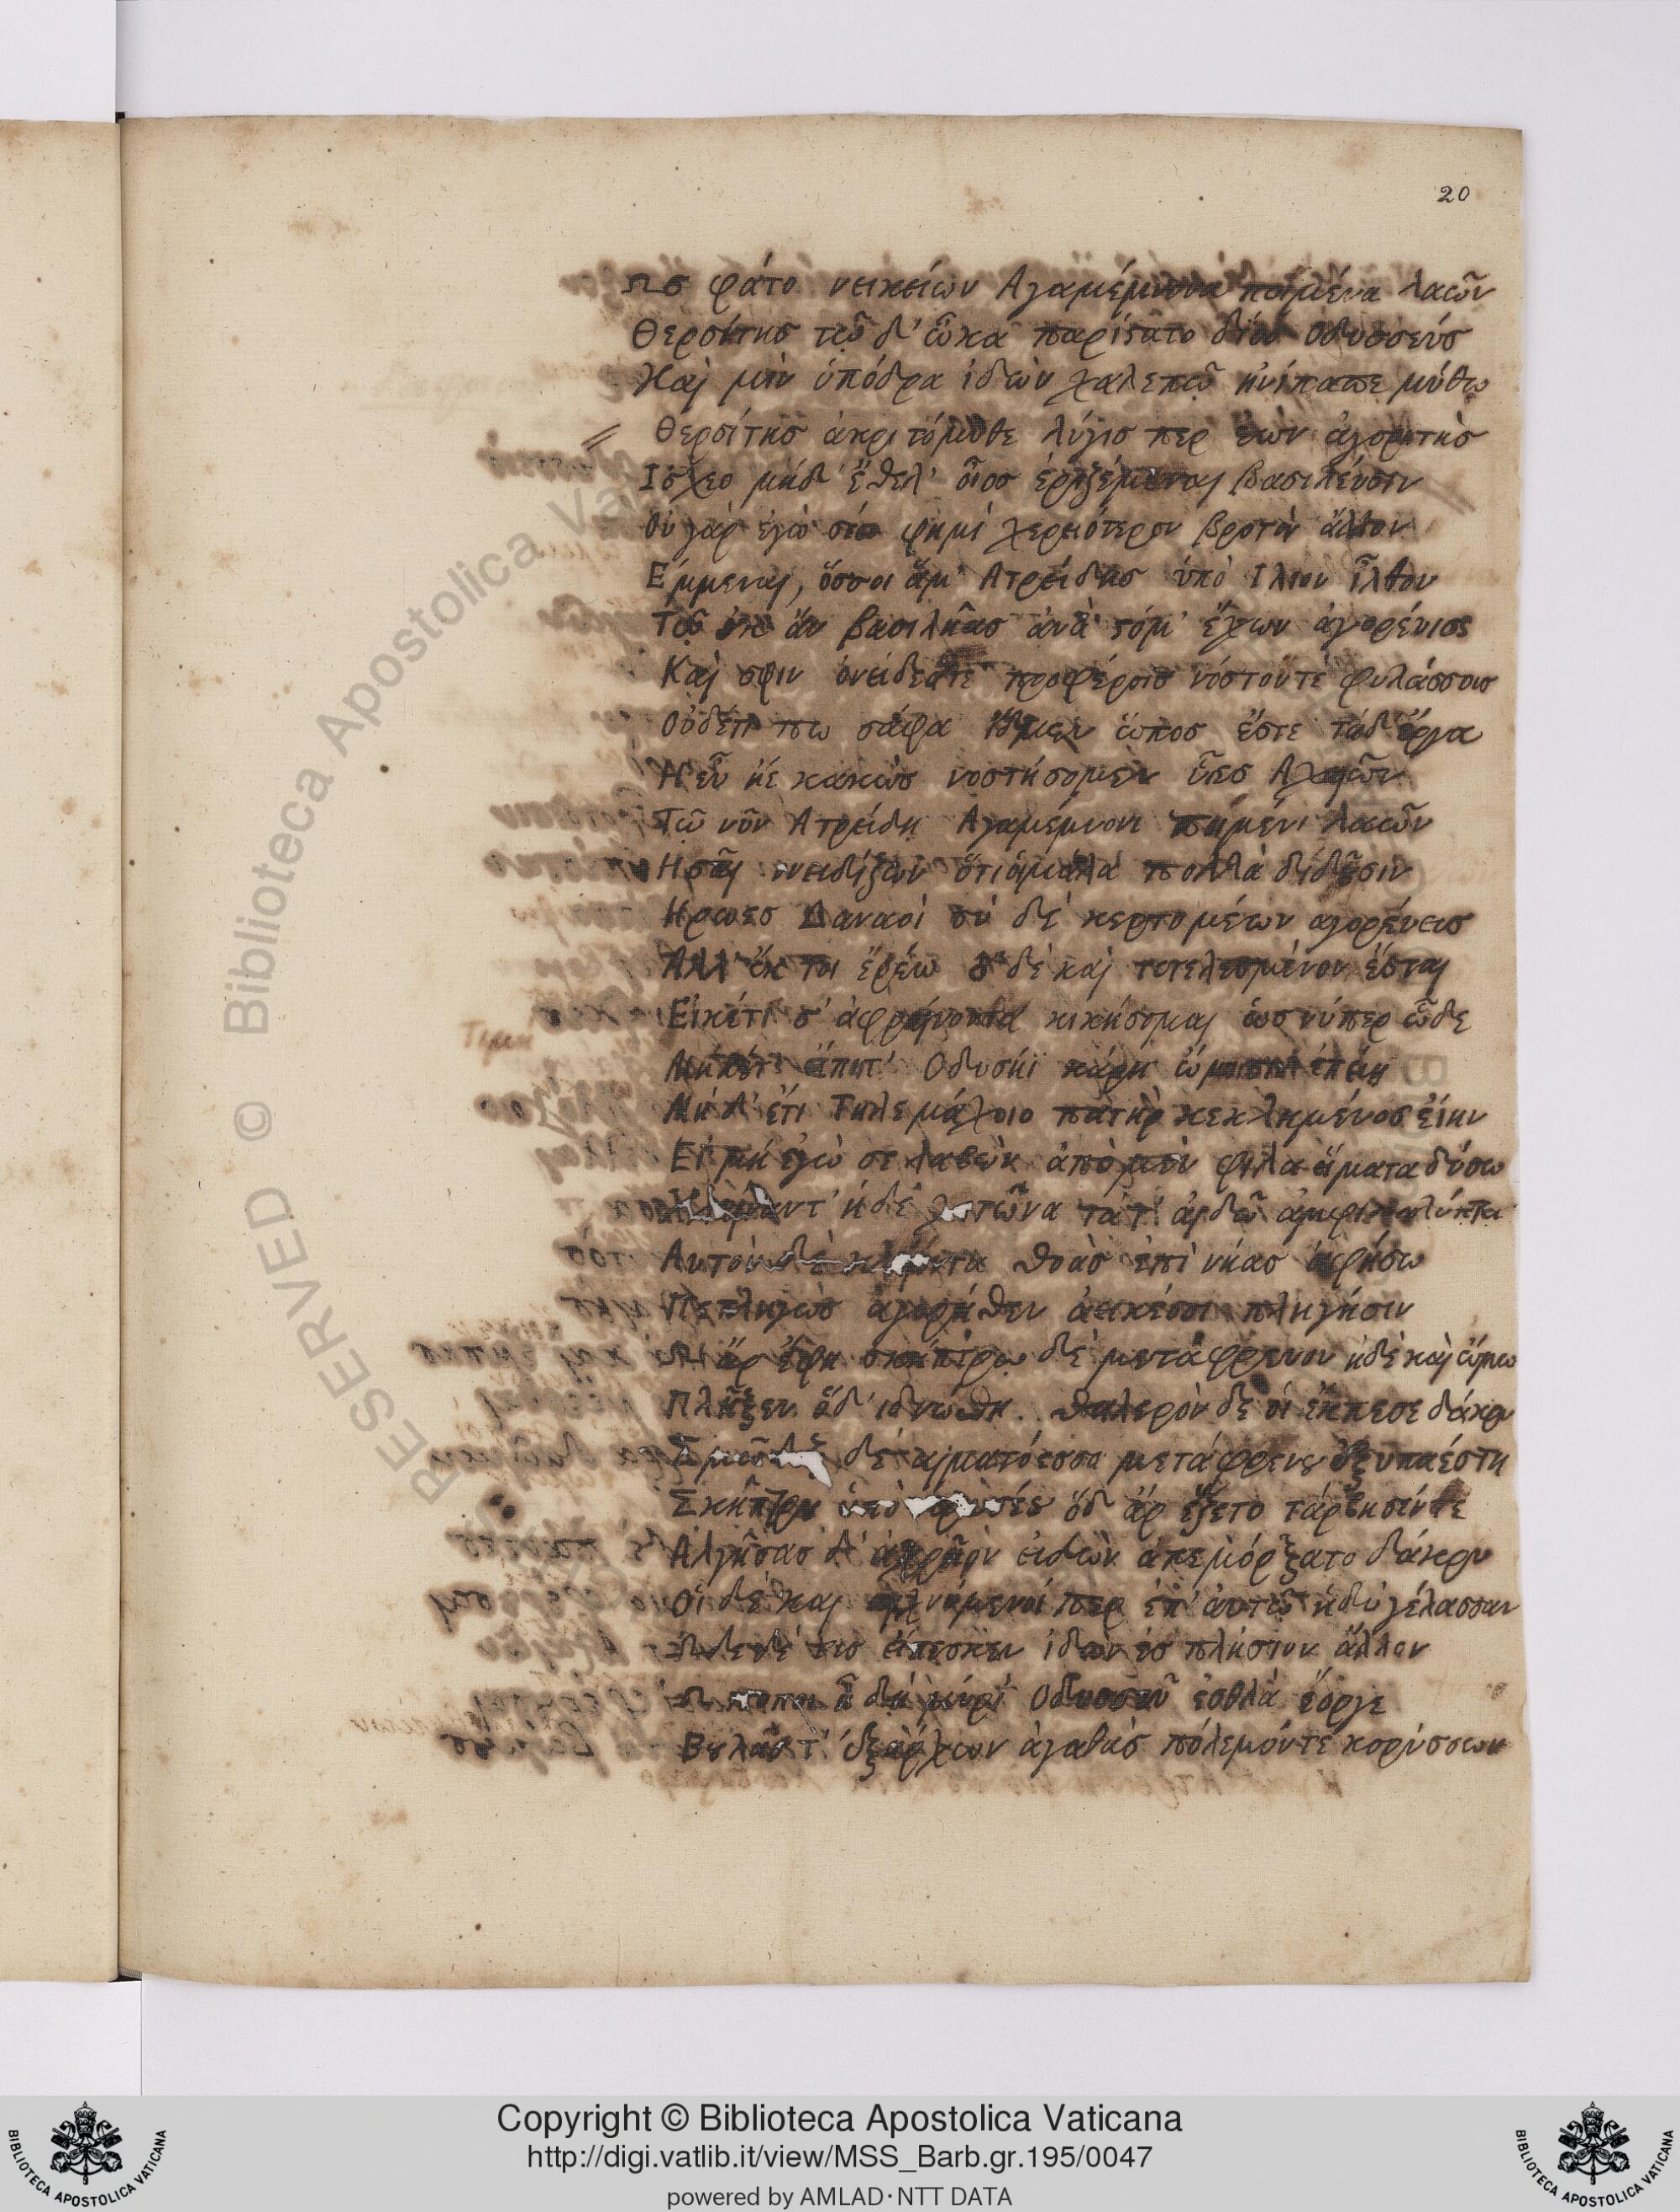 20
Ωσ φάτο νεικείων Αγαμέμνονα ποιμένα λαῶν
Θερσίτησ τῶ δ' ὦκα παρίστατο δῖοσ Οδυσσεύσ
Καὶ μὶν ὑπόδρα ἰδὼν χαλεπῶ ἠνίπαπε μύθω
Θερσίτησ ἀκριτόμυθε λύγισ περ ἐὼν ἀγορητὴσ
Ισχεο μήδ' ἔθελ' οἶοσ ἐριζέμεναι βασιλεύσιν
Οὐ γὰρ ἐγὼ σέο φημὶ χερειότερον βροτὸν ἄλλον
Εμμεναι, ὅσσοι ἅμ' Ατρείδησ ὑπὸ Ιλιον ἦλθον
Τῶ οὐκ ἄν βασιλῆασ ἀνὰ στόμ' ἔχων ἀγορένισ
Καὶ σφιν ὀνείδεάτε προφέροισ νόστόντε φυλάσσοισ
Οὐδέτι πω σάφα ἴδμεν ὅπωσ ἔσται τάδ' ἔργα
Η εὖ ἠὲ κακῶσ νοστήσομεν υἷεσ Αχαιῶν
Τῶ νῦν Ατρείδη Αγαμέμνονι ποιμένι λαῶν
Ησαι ονειδίζων ὅτι μάλα πολλὰ διδοῦσιν
Ηρωεσ Δαναοὶ σὺ δὲ κερτομέων αγορεύεισ
Αλλ' ἔκ τοι ἐρέω τὸ δὲ καὶ τετελεσμένον ἔσται
Εἰκέτι σ' ἀφραίνοντα κικήσομαι ὡσ νύπερ ὧδε
Μηκέτ' ἔπιτ' Οδυσῆϊ κάρη ὤμοισιν ἐπείη
Μη δ' ἔτι Τηλεμάχοιο πατὴρ κεκλημένοσ εἴην
Εἰ μὴ ἐγώ σε λαβὼν ἀπὸ μὲν φίλα εἵματα δύσω
ἠδὲ χιτῶνα τά τ' αἰδῶ ἀμφικαλύπτει
Αυτὸν δὲ θοὰσ ἐπὶ νῆασ ἀφήσω
Πεπληγὼσ ἀγορῆθεν ἀεικέσσι πληγῆσιν
ἄρ ἔφη σκήπτρω δὲ μετάφρενον ἠδὲ καὶ ὤμω
Πλῆξεν ὁ δ' ἰδνώθη. θαλερὸν δε οἱ ἔκπεσε δάκρυ
δ' αἱματόεσσα μετάφρενου ἐξυπανέστη
Σκήπτρου ὑπὸ χρυσέου ὁδ' ἄρ ἕζετο τάρβησέν τε
Αλγήσασ δ' ἀχρεῖον ἰδὼν ἀπεμόρξατο δάκρυ
Οἱ δὲ καὶ ἀχνύμενοί περ ἐπ' ἀυτῶ ἡδὺ γέλασσαν
τισ εἴπεσκεν ἰδὼν ἐσ πλησίον ἄλλον
ἦ δὴ μυρί' Οδυσσεῦ ἐσθλὰ ἔοργε
Βουλάσ τ' ἐξάρχων ἀγαθὰσ πόλεμόντε κορύσσων
RESERVED © Biblioteca Apostolica Va
BIBLIOTECA APOSTOLICA VATICANA
Copyright © Biblioteca Apostolica Vaticana
http://digi.vatlib.it/view/MSS_Barb.gr.195/0047
powered by AMLAD·NTT DATA
BIBLIOTECA APOSTOLICA VATICANA